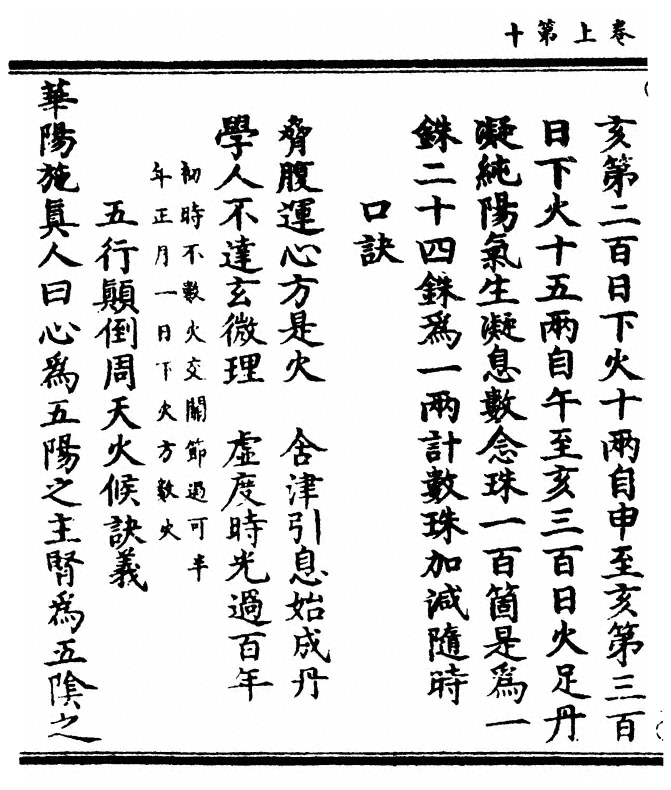 卷上第十
亥第二百日下火十兩自申至亥第三百
日下火十五兩自午至亥三百日火足丹
凝純陽氣生凝息數念珠一百箇是爲一
銖二十四銖爲一兩計數珠加減隨時
口訣
脅腹運心方是火　舍津引息始成丹
學人不達玄微理　虛度時光過百年
初時不數火交關節過可半
年正月一日下火方數火
五行顚倒周天火候訣義
華陽施眞人曰心爲五陽之主腎爲五陰之